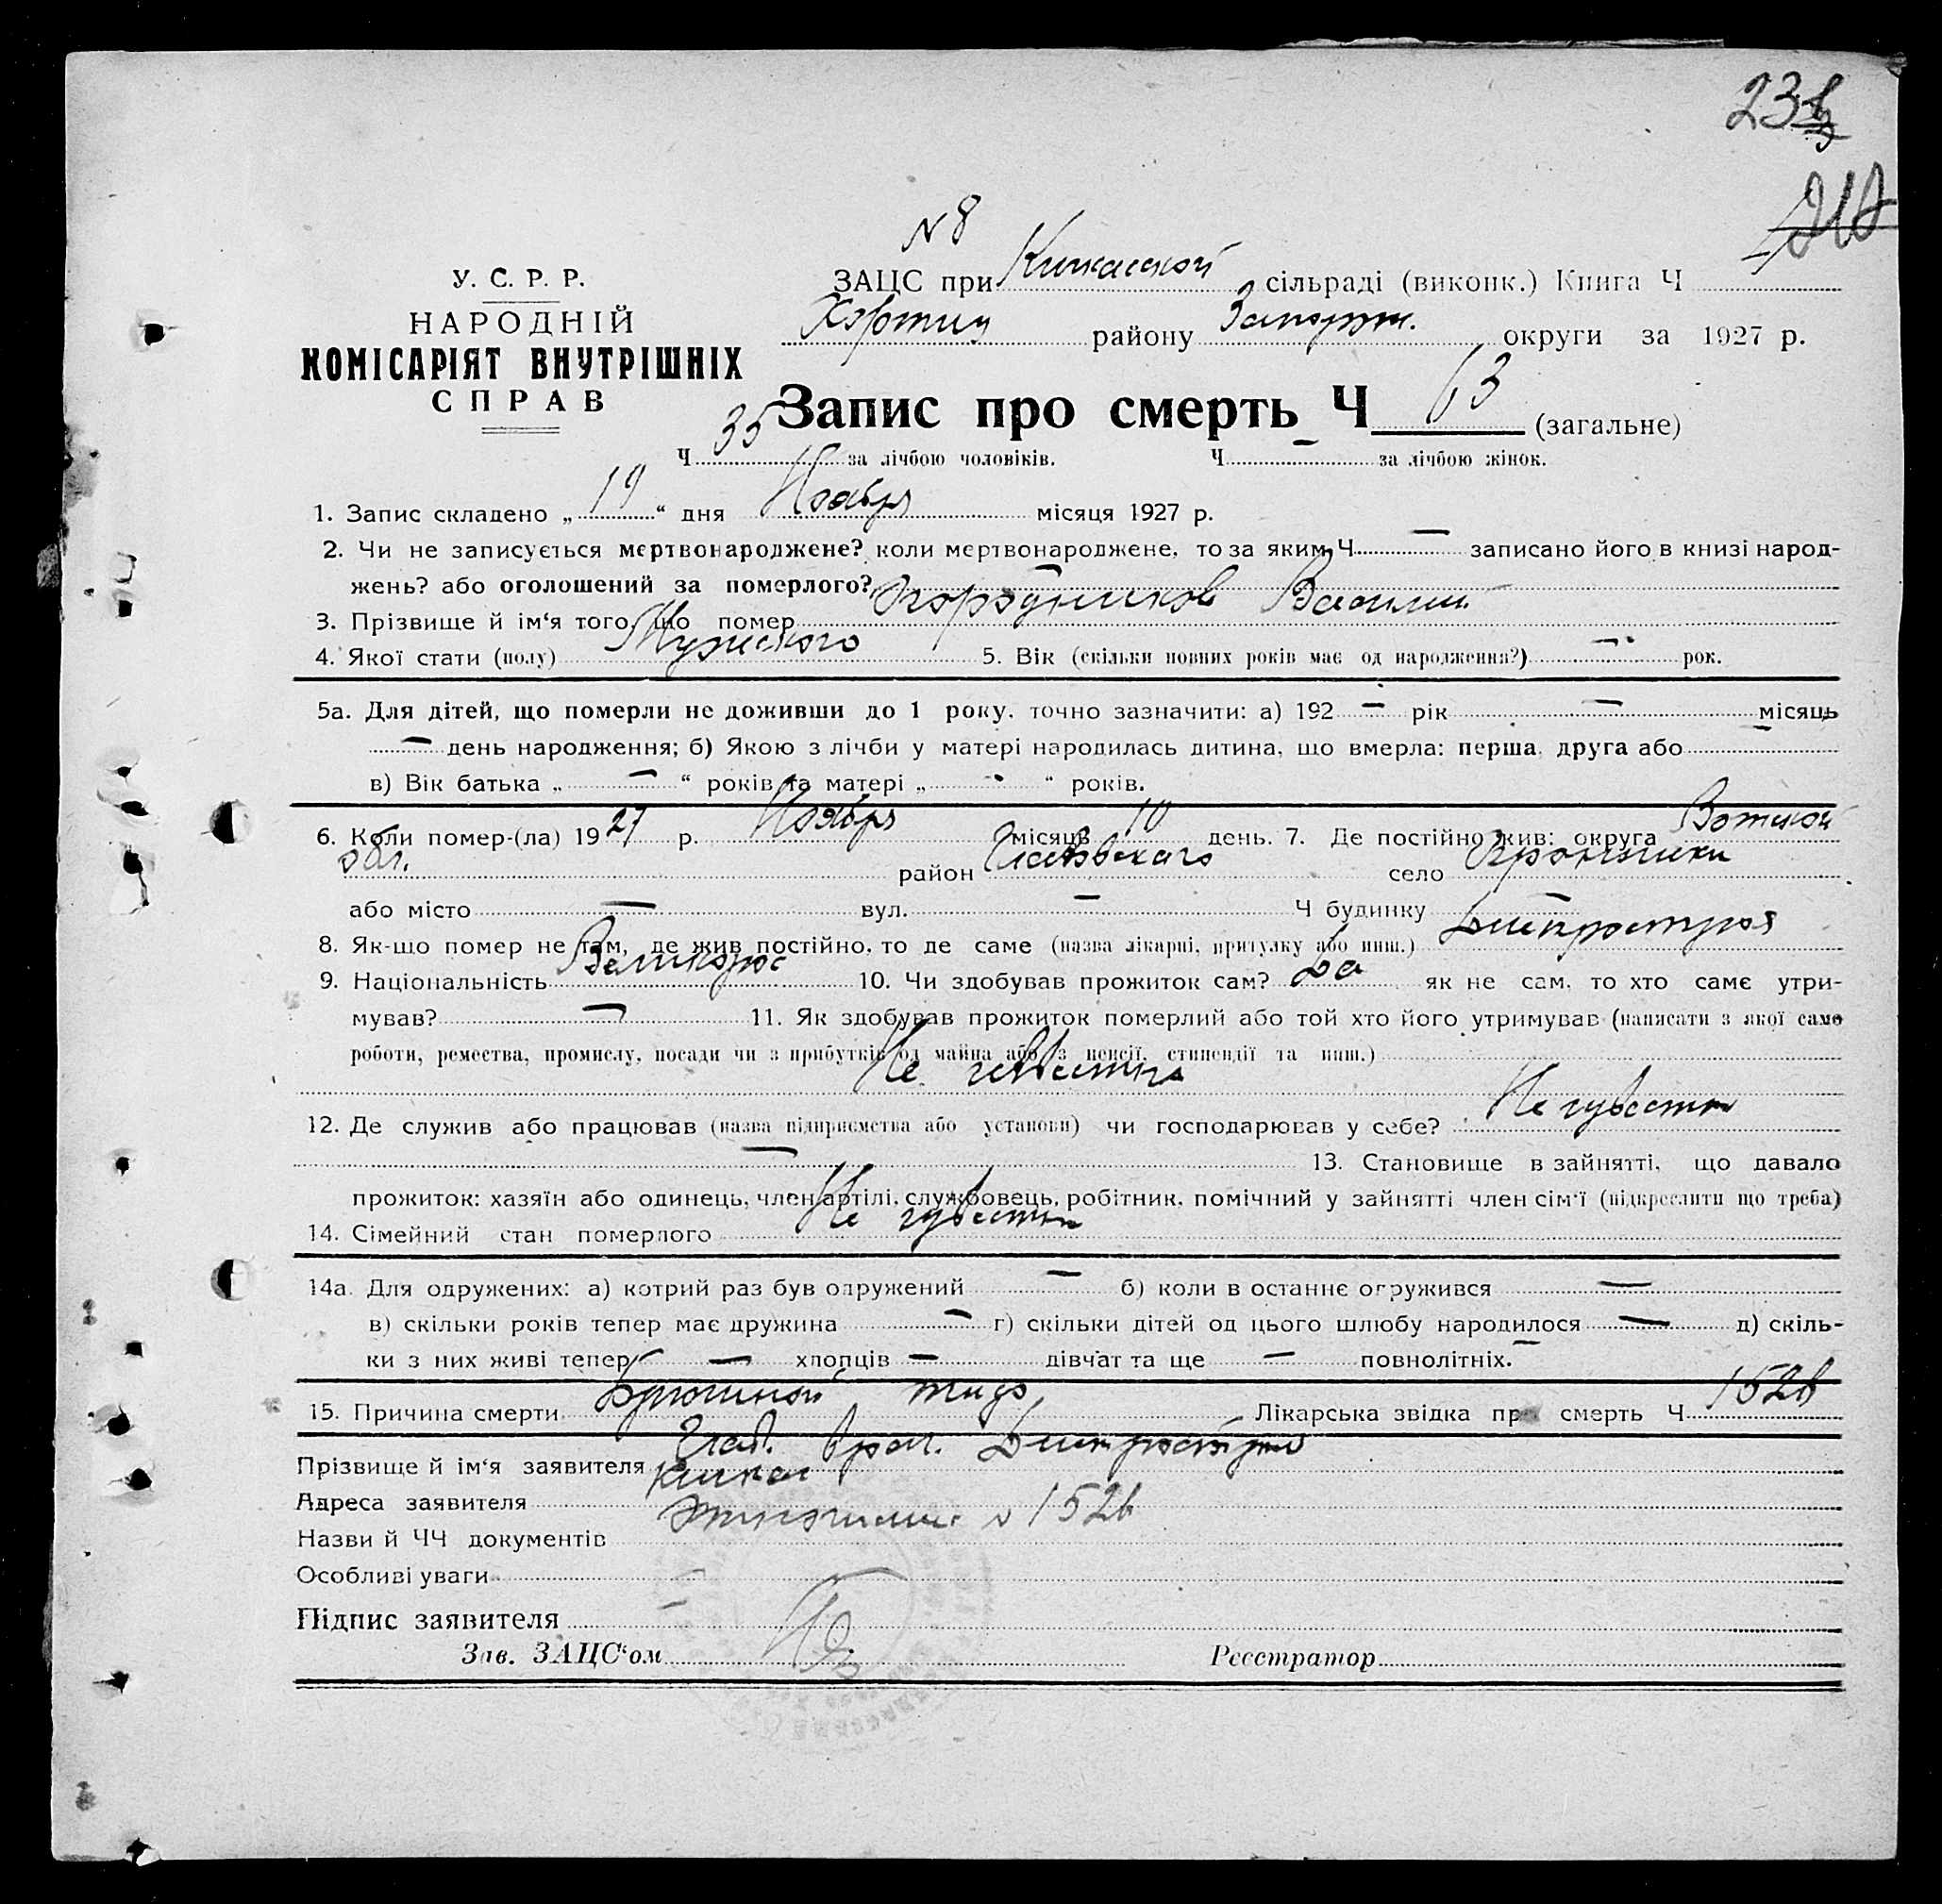 23
№ 8
У. С. Р. Р.
НАРОДНІЙ
КОМІСАРІЯТ ВНУТРІШНІХ
СПРАВ
ЗАЦС при Кичкасской сільраді (виконк.) Книга Ч
Хортиц району Запорож. округи за 1927 р.
Запис про смерть Ч 63 (загальне)
Ч 35 за лічбою чоловіків. Ч — за лічбою жінок.
1. Запис складено „ 19 “ дня Ноября місяця 1927 р.
2. Чи не записується мертвонароджене? коли мертвонароджене, то за яким Ч — записано його в книзі народ-
жень? або оголошений за померлого? —
3. Прізвище й ім'я того, що помер Огородников Василий
4. Якої стати (полу) Мужского 5. Вік (скільки повних років має од народження?) — рок.
5а. Для дітей, що померли не доживши до 1 року, точно зазначити: а) 192 — рік — місяць
— день народження; б) Якою з лічби у матері народилась дитина, що вмерла: перша, друга або —
в) Вік батька „ — “ років та матері „ - “ років.
6. Коли помер-(ла) 1927 р. Ноября місяць 10 день. 7. Де постійно жив: округа Вотской
обл. район село
або місто — вул. — Ч будинку
8. Як-що помер не там, де жив постійно, то де саме (назва лікарні, притулку або инш.) Днепрострой
9. Національність Великорос 10. Чи здобував прожиток сам? Да як не сам, то хто саме утри-
мував? — 11. Як здобував прожиток померлий або той хто його утримував (написати з якої само
роботи, ремества, промислу, посади чи з прибутків од майна або з пенсії, стипендії та инш.)
Не известно
12. Де служив або працював (назва підприємства або установи) чи господарював у себе? Не известно
— 13. Становище в зайнятті, що давало
прожиток: хазяїн або одинець, член артілі, службовець, робітник, помічний у зайнятті член сім'ї (підкреслити що треба)
14. Сімейний стан померлого Не известно
14а. Для одружених: а) котрий раз був одружений — б) коли в останнє одружився —
в) скільки років тепер має дружина — г) скільки дітей од цього шлюбу народилося — д) скіль-
ки з них живі тепер — хлопців — дівчат та ще — повнолітніх. —
15. Причина смерти Брюшной тиф Лікарська звідка про смерть Ч
Прізвище й ім'я заявителя Глав. врач. Днепрострой
Адреса заявителя Кичкас
Назви й ЧЧ документів
Особливі уваги —
Підпис заявителя —
Зав. ЗАЦС'ом
Реєстратор